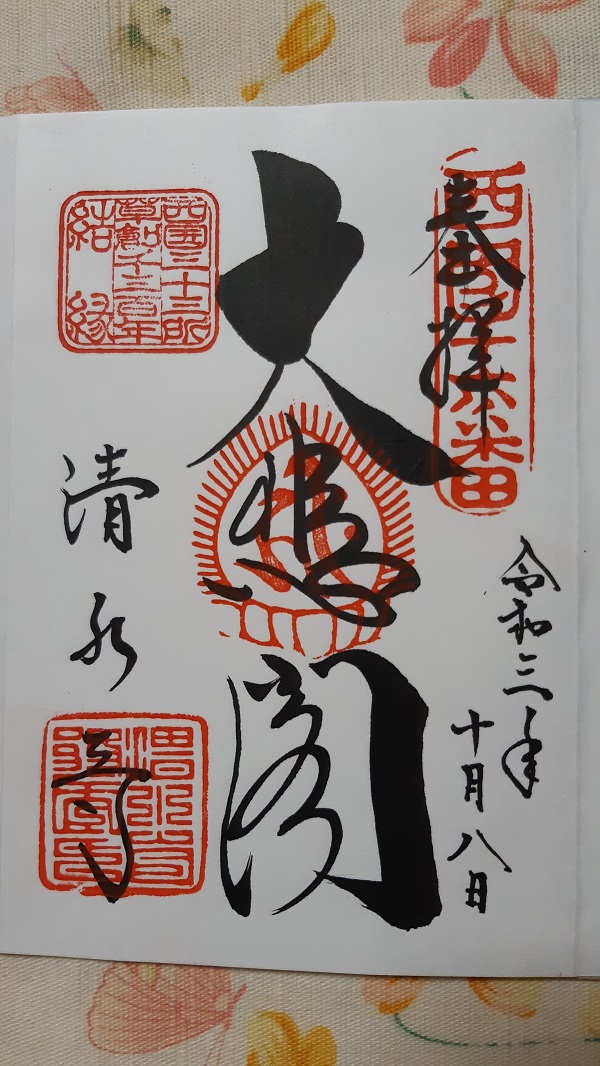 奉拝
西国十六番
令和三年
十月八日
大悲閣
西国三十三所
草創千三百年
結縁
清水寺